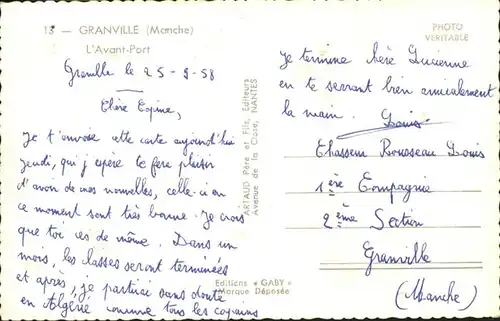 13 — GRANVILLE (Manche)
L'Avant-Port
Granville le 25-9-58
Chère Copine,
Je t'envoie cette carte aujourd'hui
jeudi, qui j'espère te fera plaisir
d'avoir de mes nouvelles, celle-ci en
ce moment sont très bonne. Je crois
que toi es de même. Dans un
mois, les classes seront terminées
et après, je partirai sans doute
en Algérie comme tous les copains
ARTAUD Père et Fils, Editeurs
Avenue de la Close, NANTES
Editions « GABY »
Marque Déposée
PHOTO
VERITABLE
Je termine chère Lucienne
en te serrant bien amicalement
la main. Louis
Chasseur Rousseau Louis
1ère Compagnie
2ème Section
Granville
(Manche)